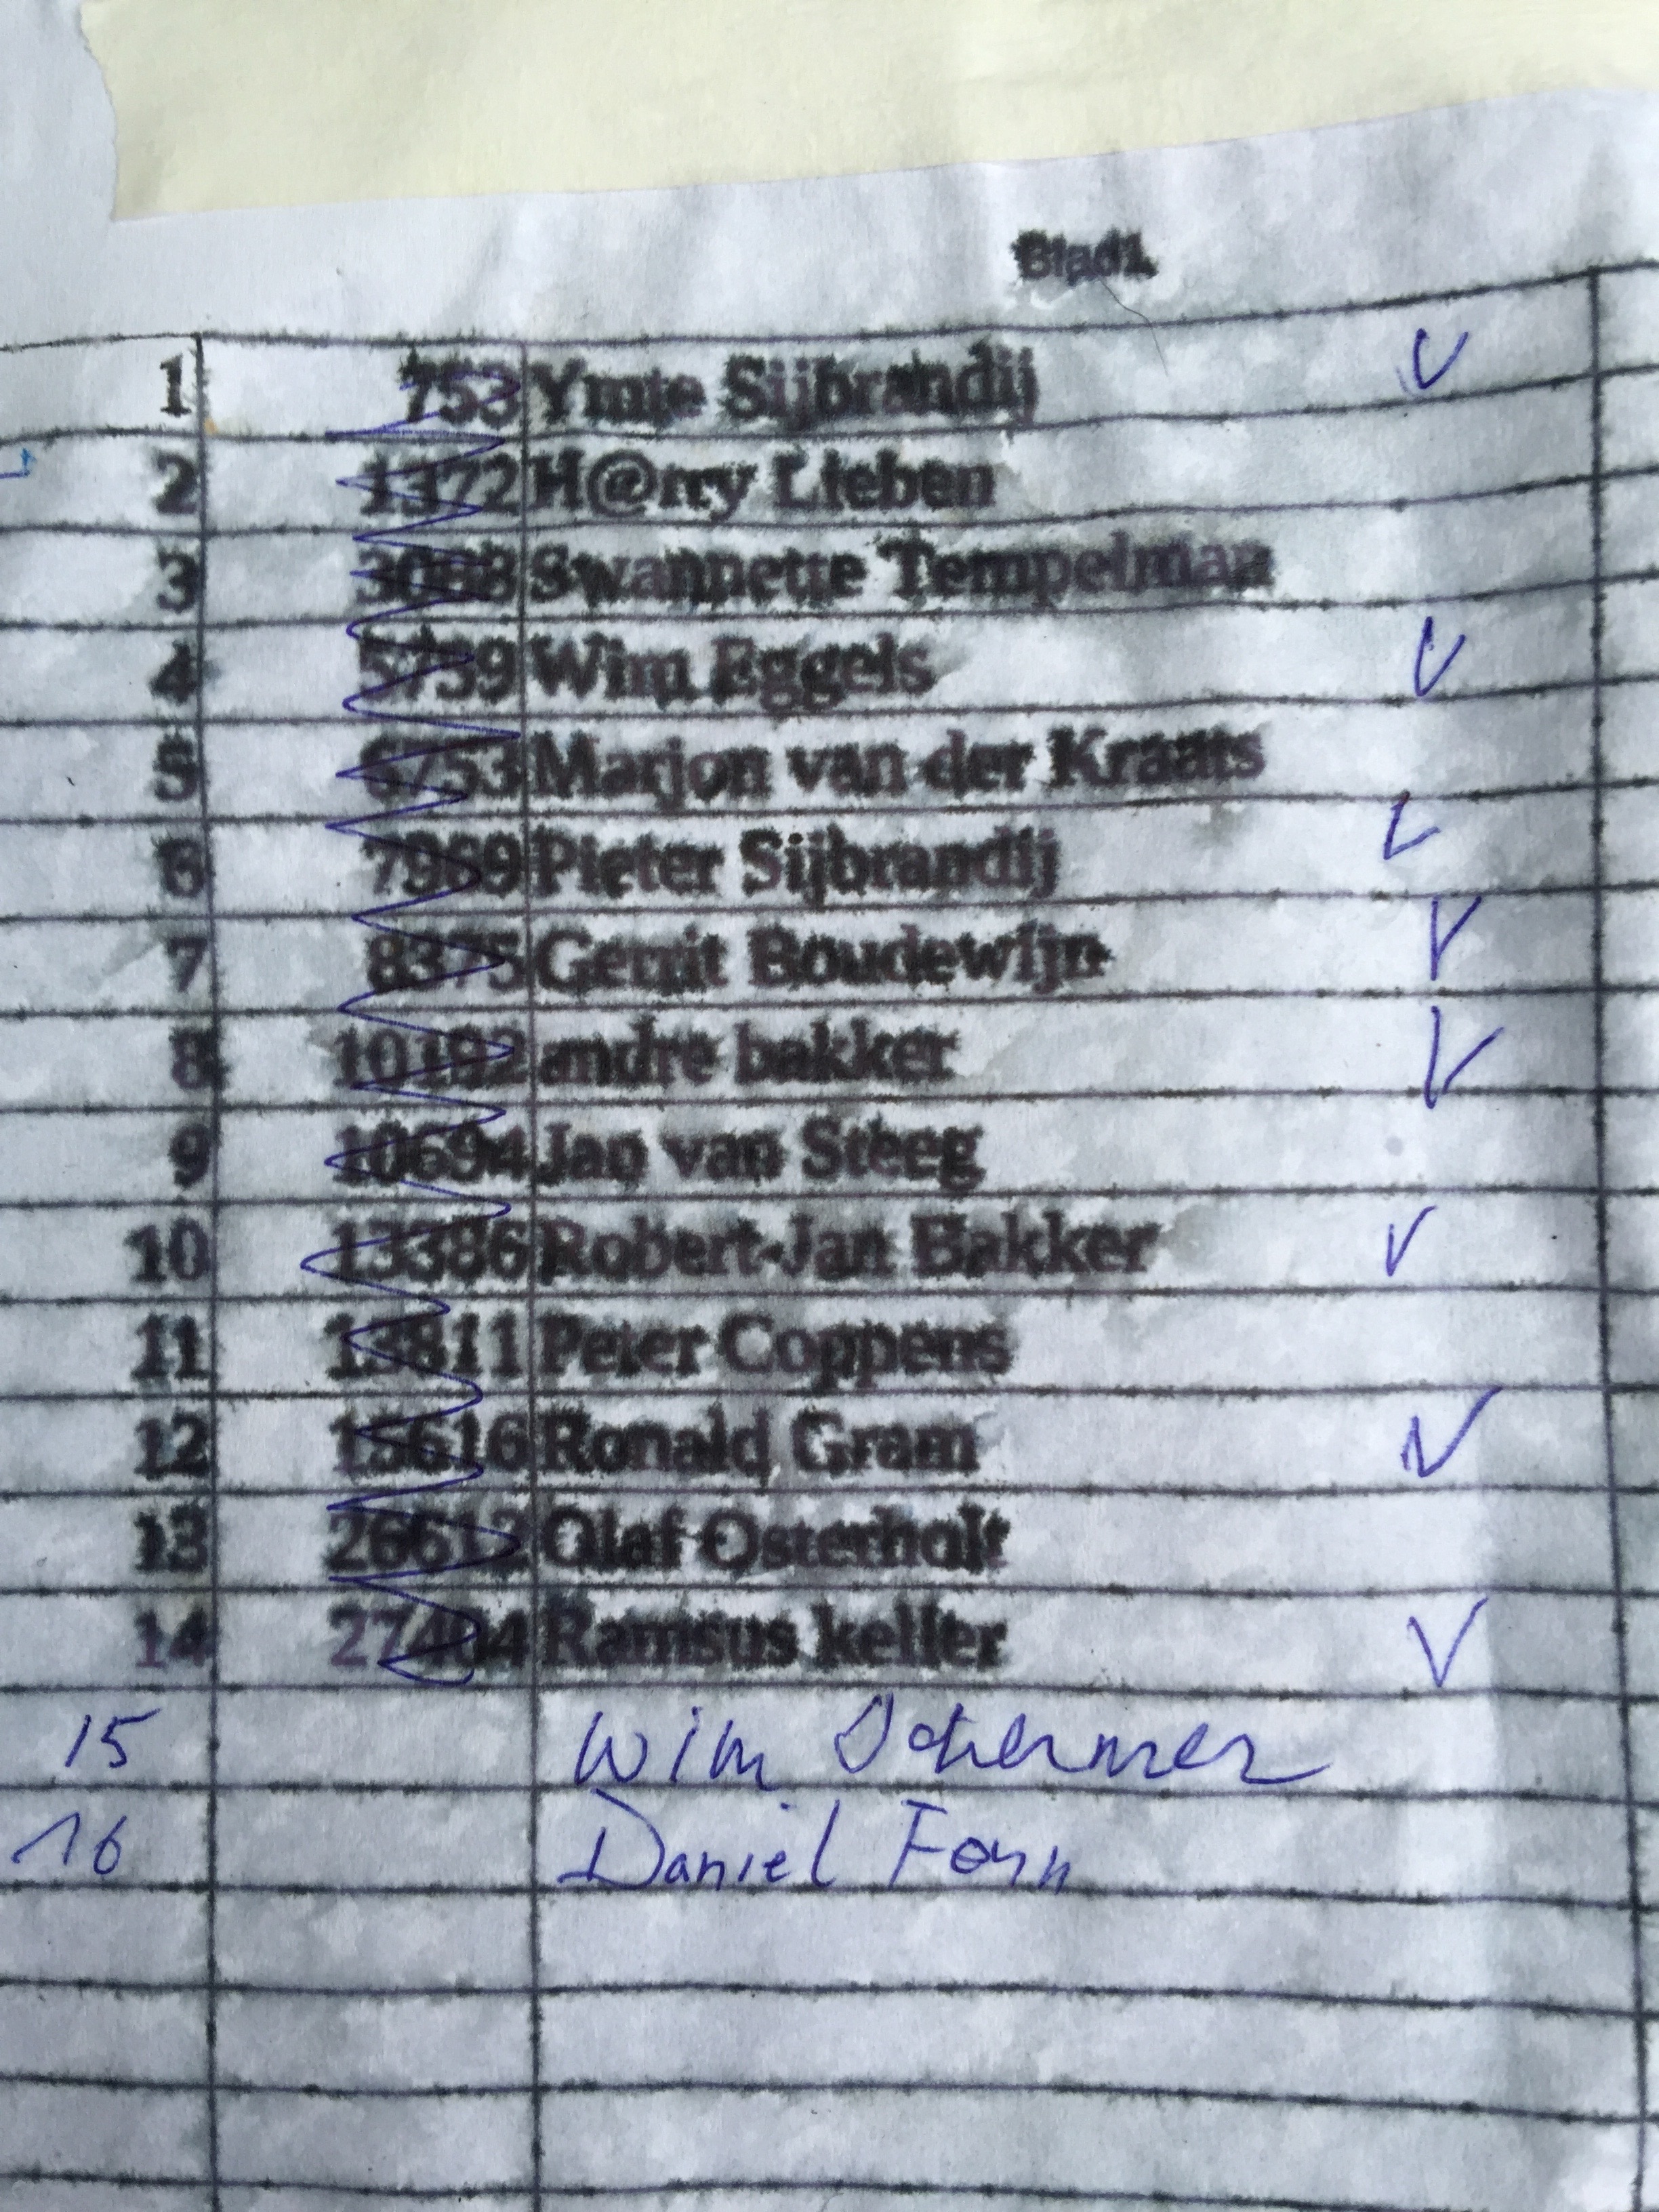 Blad1
1 753 Ymte Sijbrandij
2 1372 H@rry Lieben
3 Swannette Tempelman
4 5739 Wim Eggels
5 6753 Marjon van der Kraats
6 7969 Pieter Sijbrandij
7 8375 Gerrit Boudewijn
8 10192 andre bakker
9 10694 Jan van Steeg
10 13386 Robert-Jan Bakker
11 13811 Peter Coppens
12 15616 Ronald Gram
13 26612 Olaf Osterholt
14 27404 Ramsus keller
15 Wim Schermer
16 Daniel